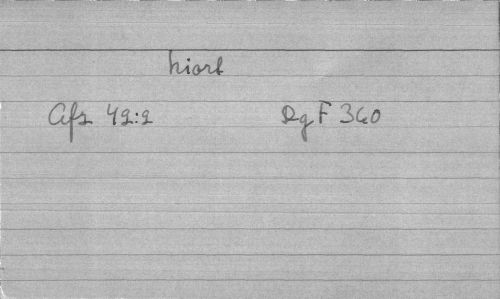 hiort
Afz 42:2 DgF 360